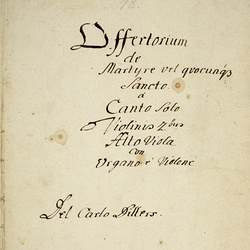 Offertorium
de
Martyre vel quocunqs
Sancto.
à
Canto Solo
Violinis 2bus
Alto Viola
con
Organo è Violone
Del Carlo Dillers.